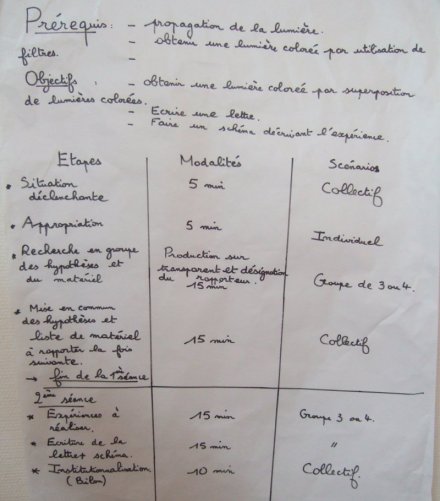 Prérequis : - propagation de la lumière.
- obtenir une lumière colorée par utilisation de
filtres. -
Objectifs : - obtenir une lumière colorée par superposition
de lumières colorées.
- Ecrire une lettre.
- Faire un schéma décrivant l'expérience.
Etapes Modalités Scénarios
* Situation déclenchante 5 min Collectif
* Appropriation 5 min Individuel
* Recherche en groupe des hypothèses et du matériel Production sur transparent et désignation du rapporteur 15 min Groupe de 3 ou 4.
* Mise en commun des hypothèses et liste de matériel à rapporter la fois suivante. 15 min Collectif
→ fin de la 1ère séance
2ème séance
* Expériences à réaliser. 15 min Groupe 3 ou 4.
* Ecriture de la lettre + schéma. 15 min "
* Institutionnalisation. (Bilan) 10 min Collectif.